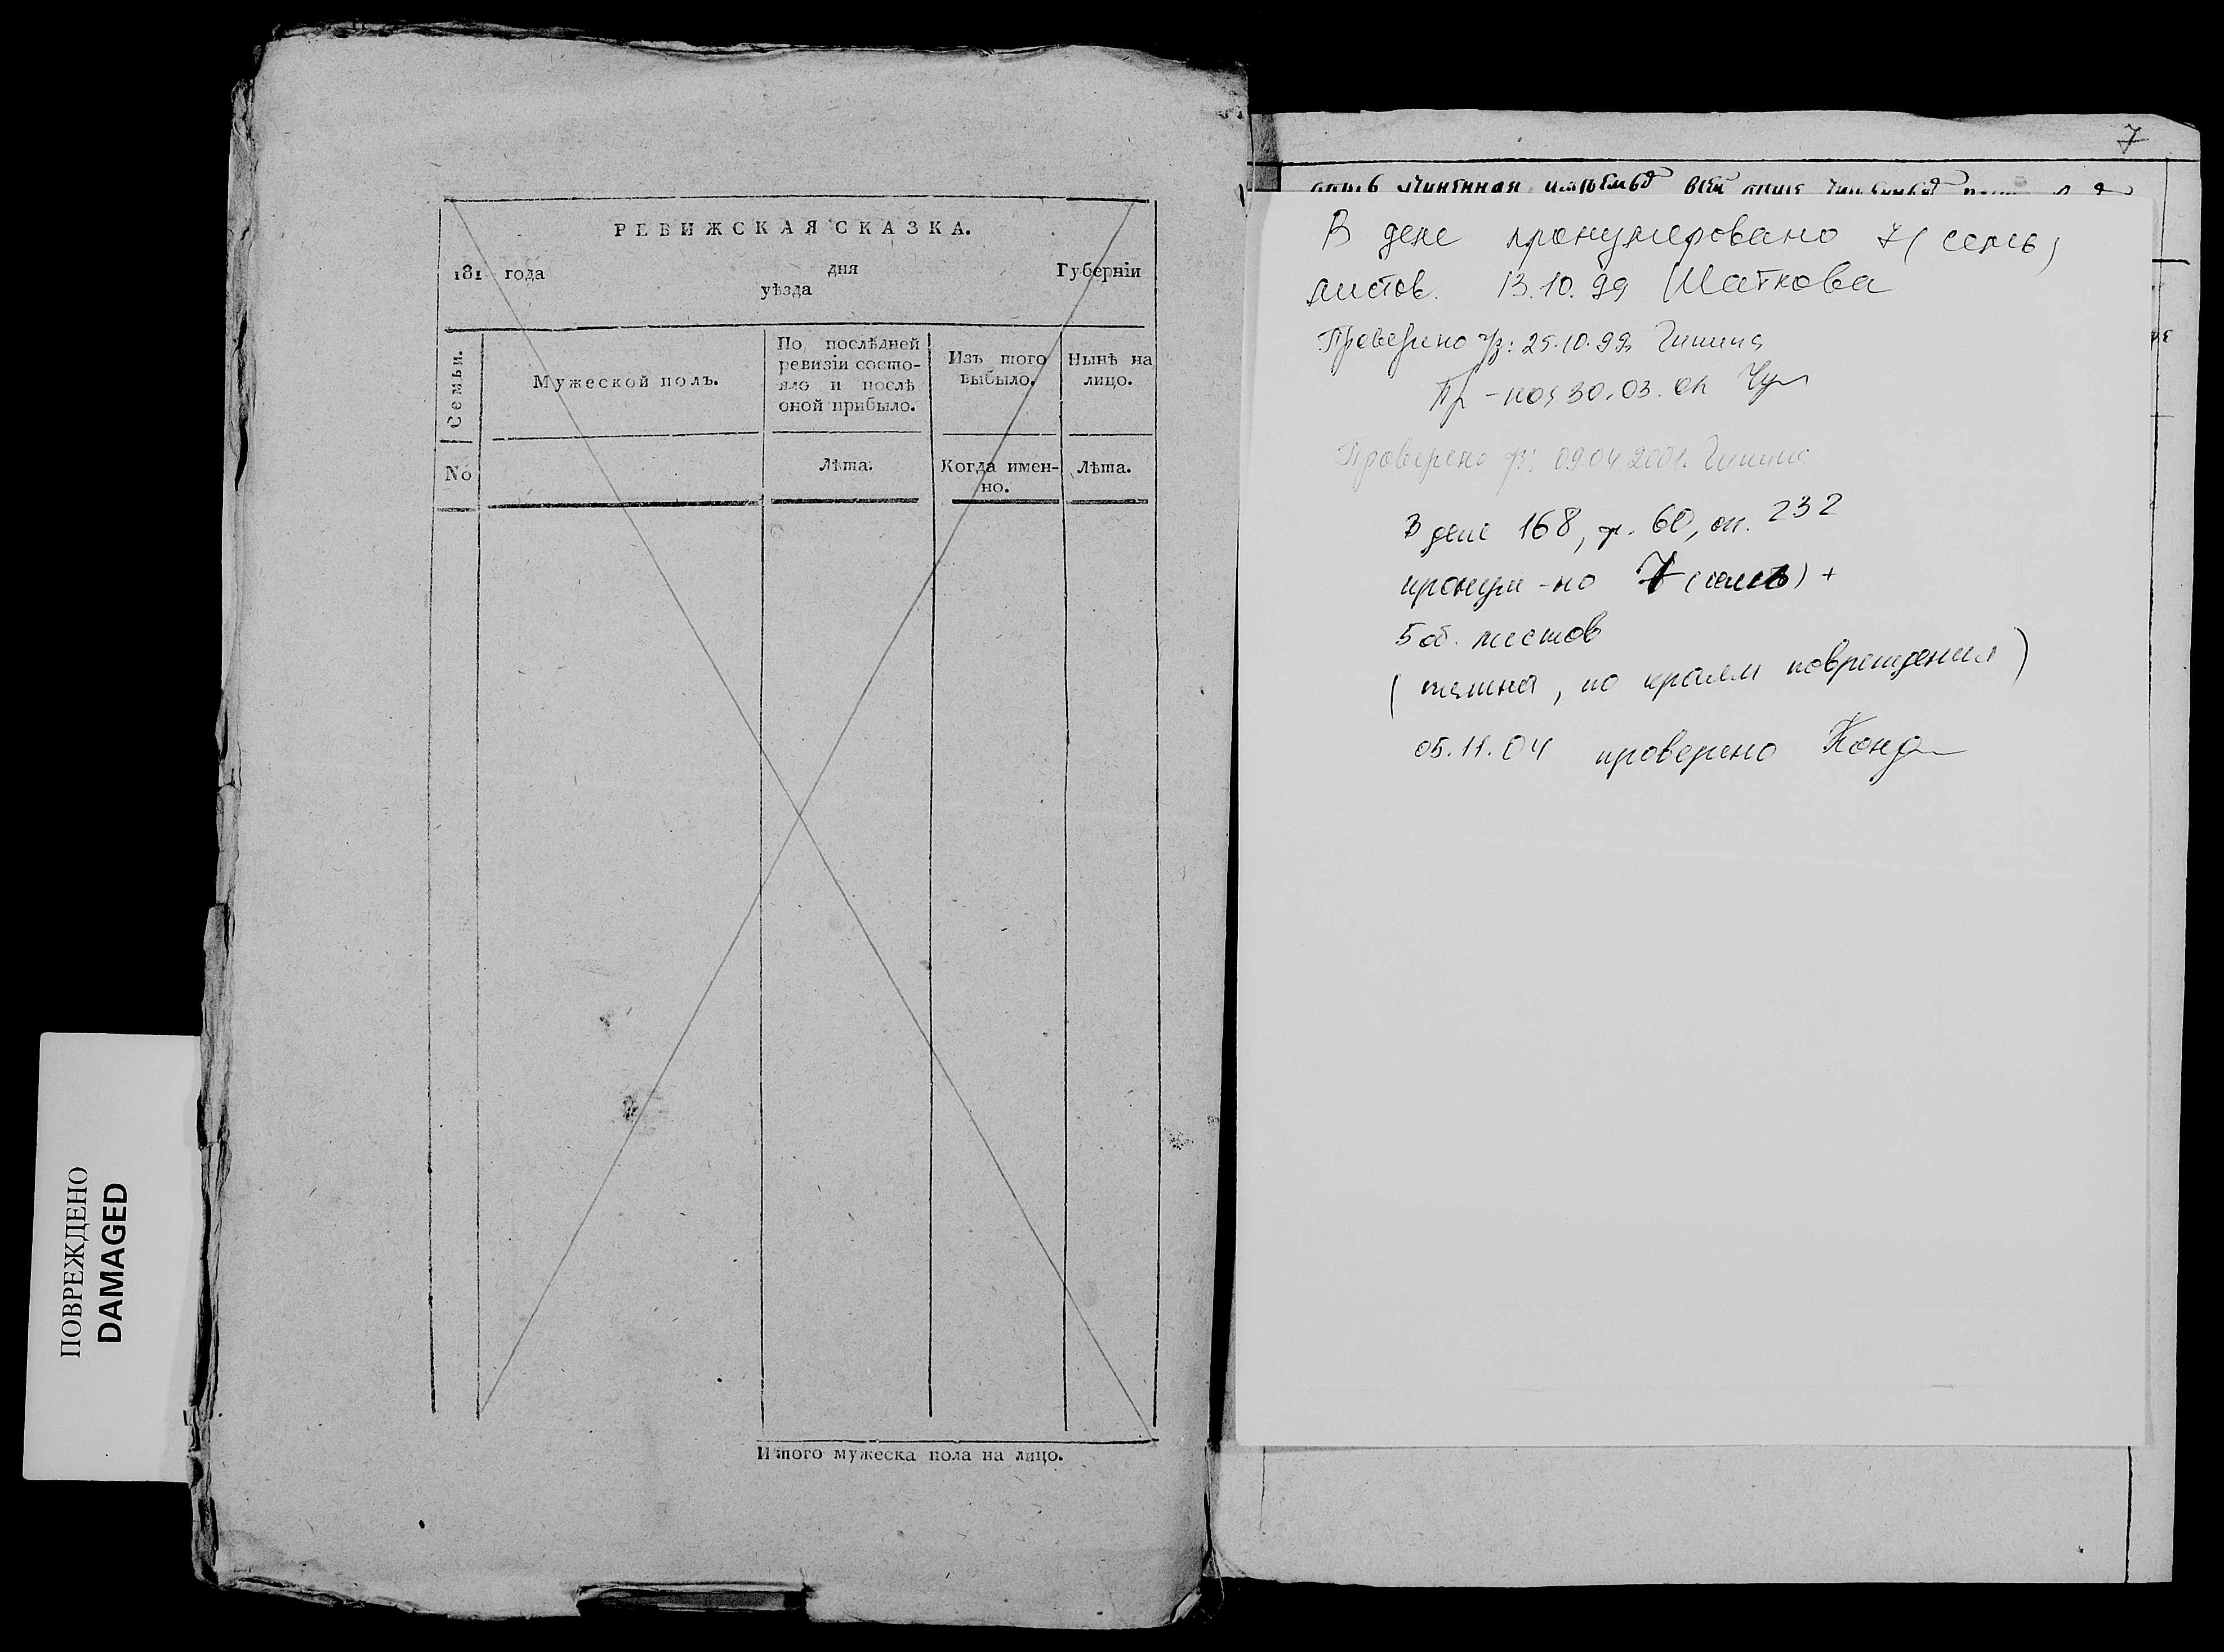 РЕВИЖСКАЯ СКАЗКА.
181 года дня Губерніи
уѣзда
Семьи.
Мужеской полъ.
По послѣдней
ревизіи состо-
яло и послѣ
оной прибыло.
Изъ того
выбыло.
Нынѣ на
лицо.
No
Лѣта.
Когда имен-
но.
Лѣта.
Итого мужеска пола на лицо.
ПОВРЕЖДЕНО
DAMAGED
7
В деле пронумеровано 7 (семь)
листов. 13.10.99 Шаткова
Проверено ч/з: 25.10.99
Пр-но 30.03.
Проверено ч/з 09.04.2001.
В деле 168, ф. 60, оп. 232
пронум-но 7 (семь) +
5 об. листов
( по краям повреждения)
05.11.04 проверено